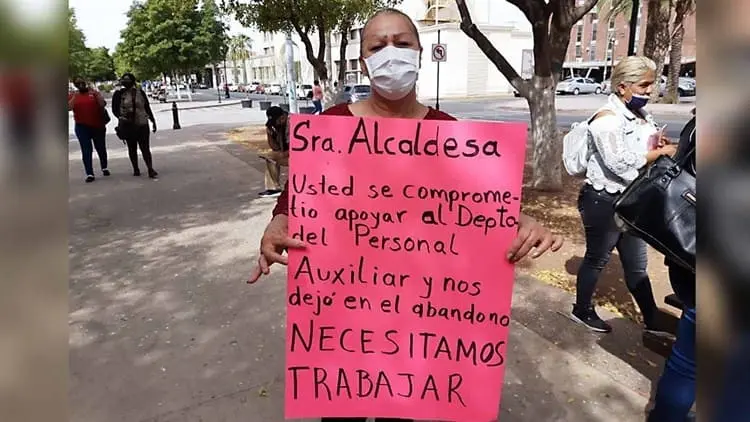 Sra. Alcaldesa
Usted se comprome-
tio apoyar al Depto
del Personal
Auxiliar y nos
dejó en el abandono
NECESITAMOS
TRABAJAR